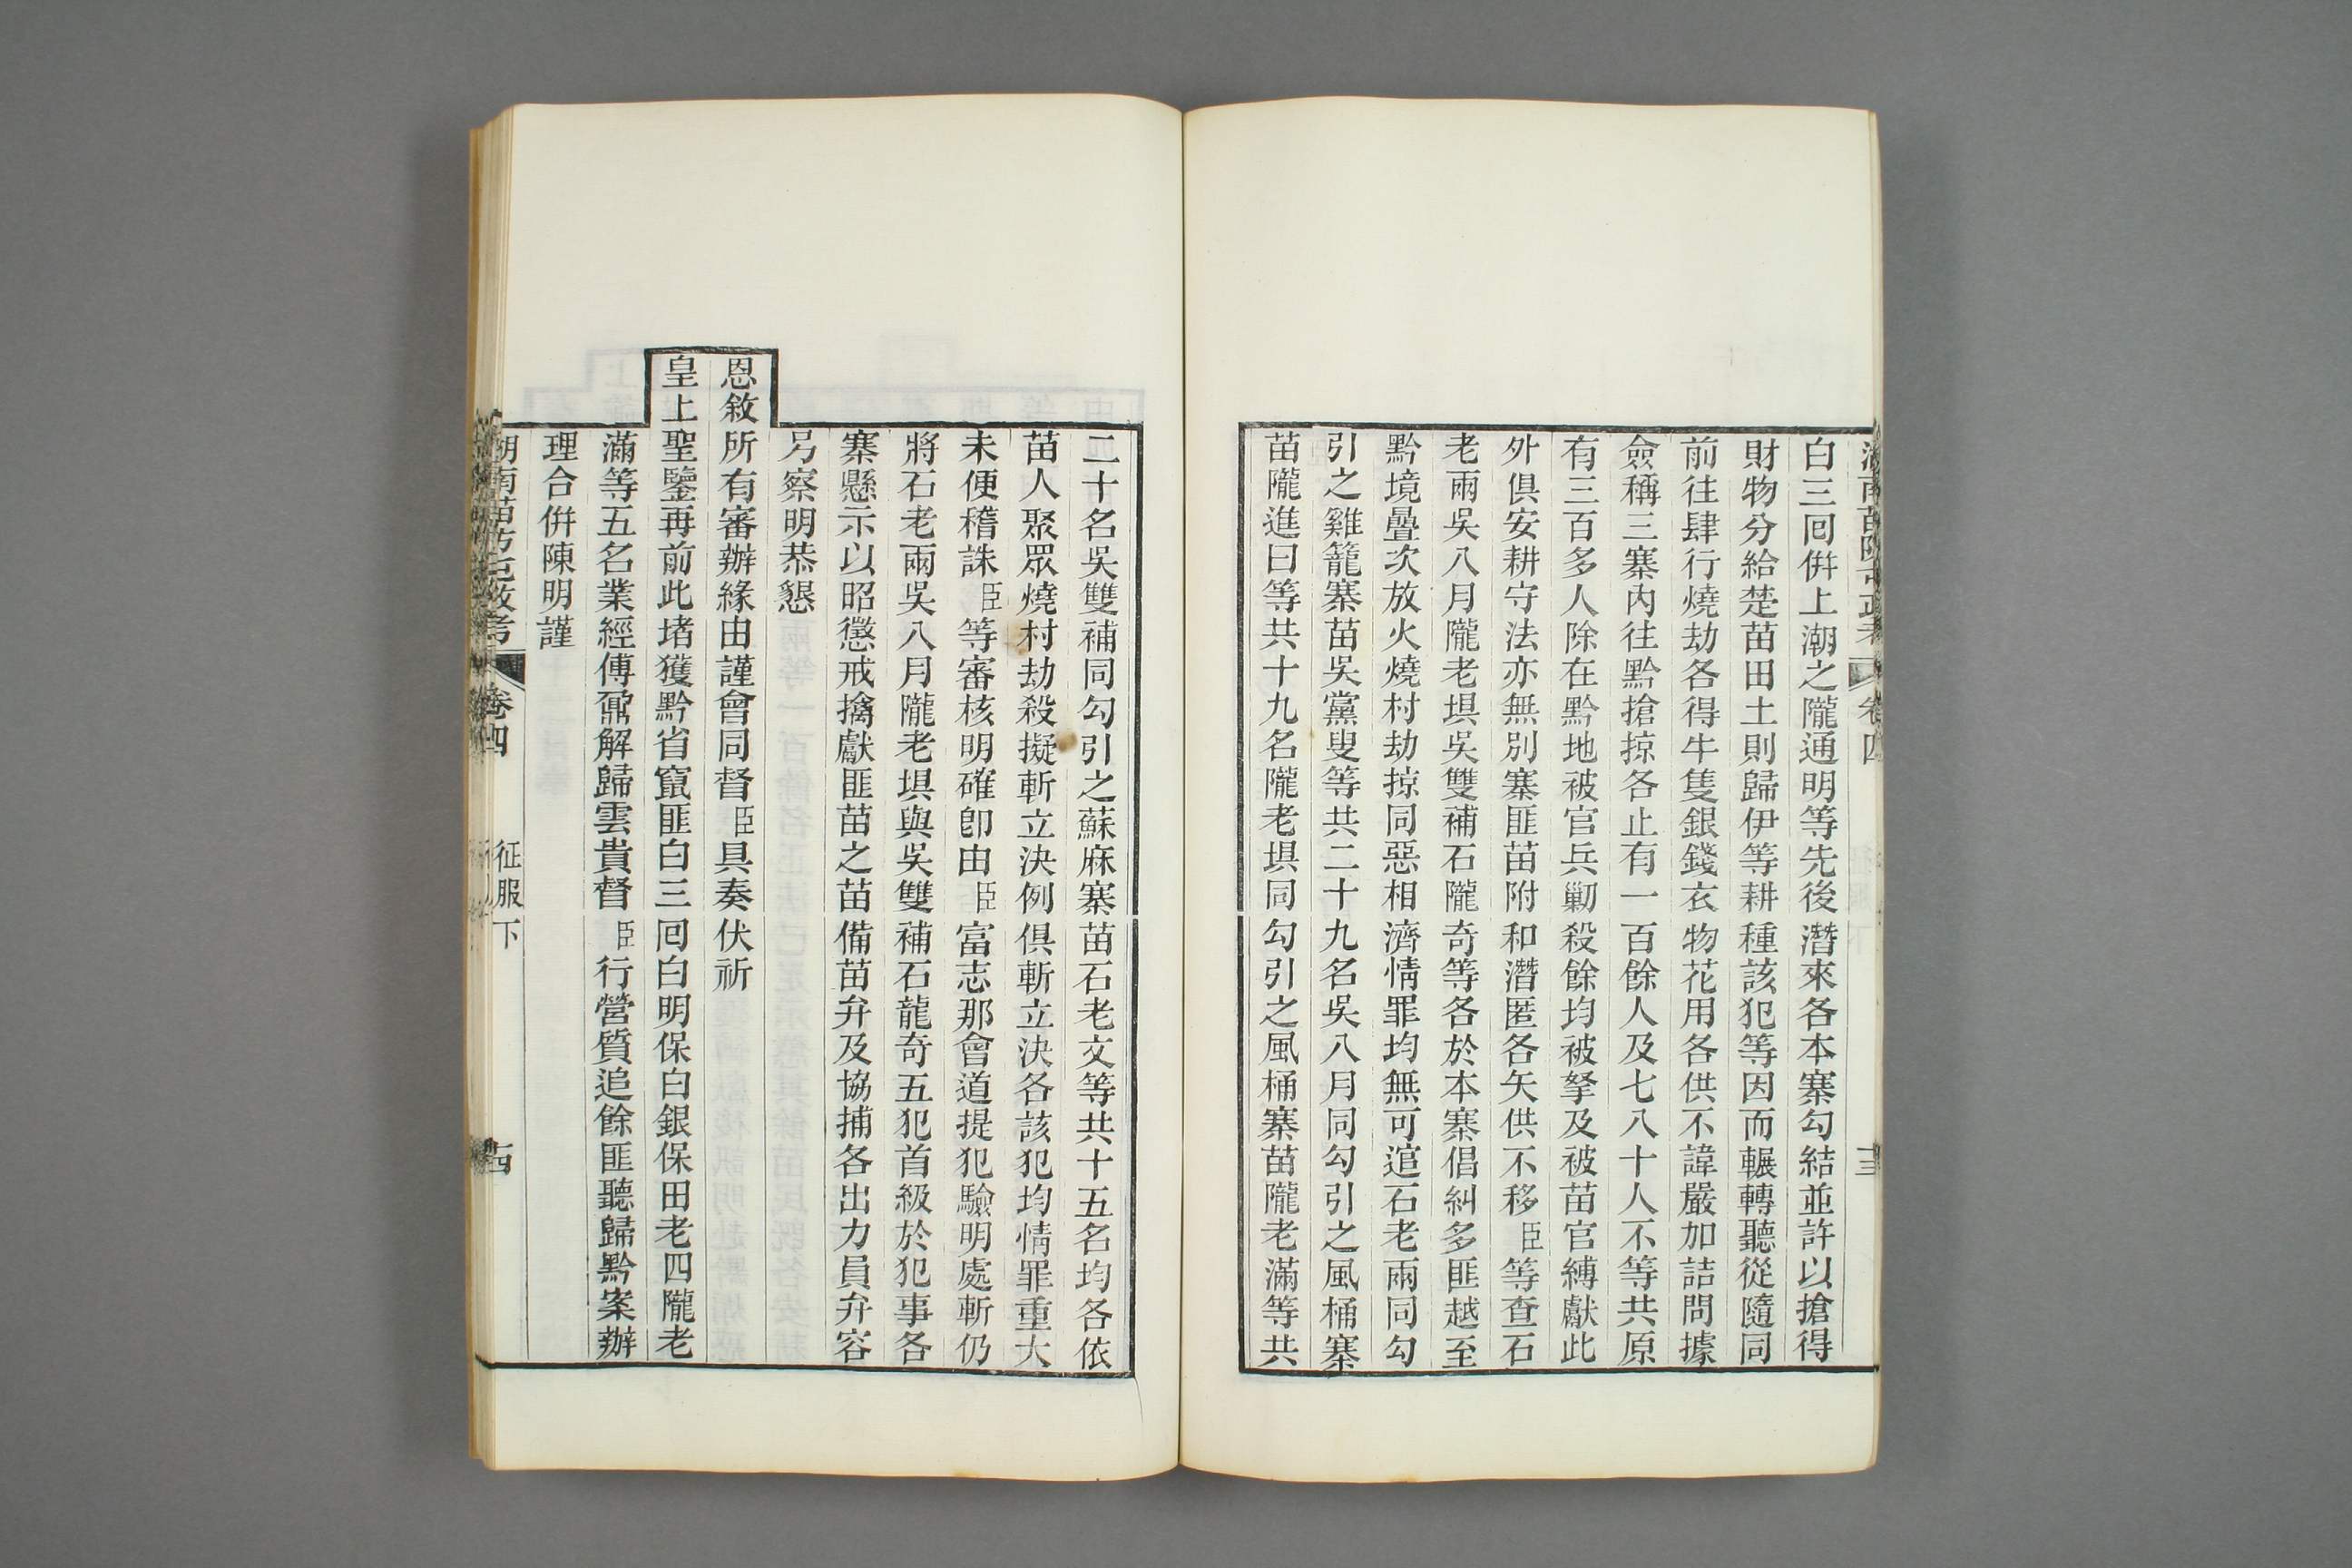 白三囘倂上潮之隴通明等先後潛來各本寨勾結並許以搶得
財物分給楚苗田土則歸伊等耕種該犯等因而輾轉聽從隨同
前往肆行燒劫各得牛隻銀錢衣物花用各供不諱嚴加詰問據
僉稱三寨內往黔搶掠各止有一百餘人及七八十人不等共原
有三百多人除在黔地被官兵勦殺餘均被拏及被苗官縛獻此
外俱安耕守法亦無別寨匪苗附和潛匿各矢供不移臣等查石
老兩吳八月隴老埧吳雙補石隴奇等各於本寨倡糾多匪越至
黔境疊次放火燒村劫掠同惡相濟情罪均無可逭石老兩同勾
引之雞籠寨苗吳黨叟等共二十九名吳八月同勾引之風桶寨
苗隴進曰等共十九名隴老埧同勾引之風桶寨苗隴老滿等共
卷四
十三
二十名吳雙補同勾引之蘇麻寨苗石老文等共十五名均各依
苗人聚眾燒村劫殺擬斬立決例俱斬立決各該犯均情罪重大
未便稽誅臣等審核明確卽由臣富志那會道提犯驗明處斬仍
將石老兩吳八月隴老埧與吳雙補石龍奇五犯首級於犯事各
寨懸示以昭懲戒擒獻匪苗之苗備苗弁及協捕各出力員弁容
另察明恭懇
恩敘所有審辦緣由謹會同督臣具奏伏祈
皇上聖鑒再前此堵獲黔省竄匪白三囘白明保白銀保田老四隴老
滿等五名業經傅鼐解歸雲貴督臣行營質追餘匪聽歸黔案辦
理合倂陳明謹
湖南苗防屯政考
卷四
征服下
十四